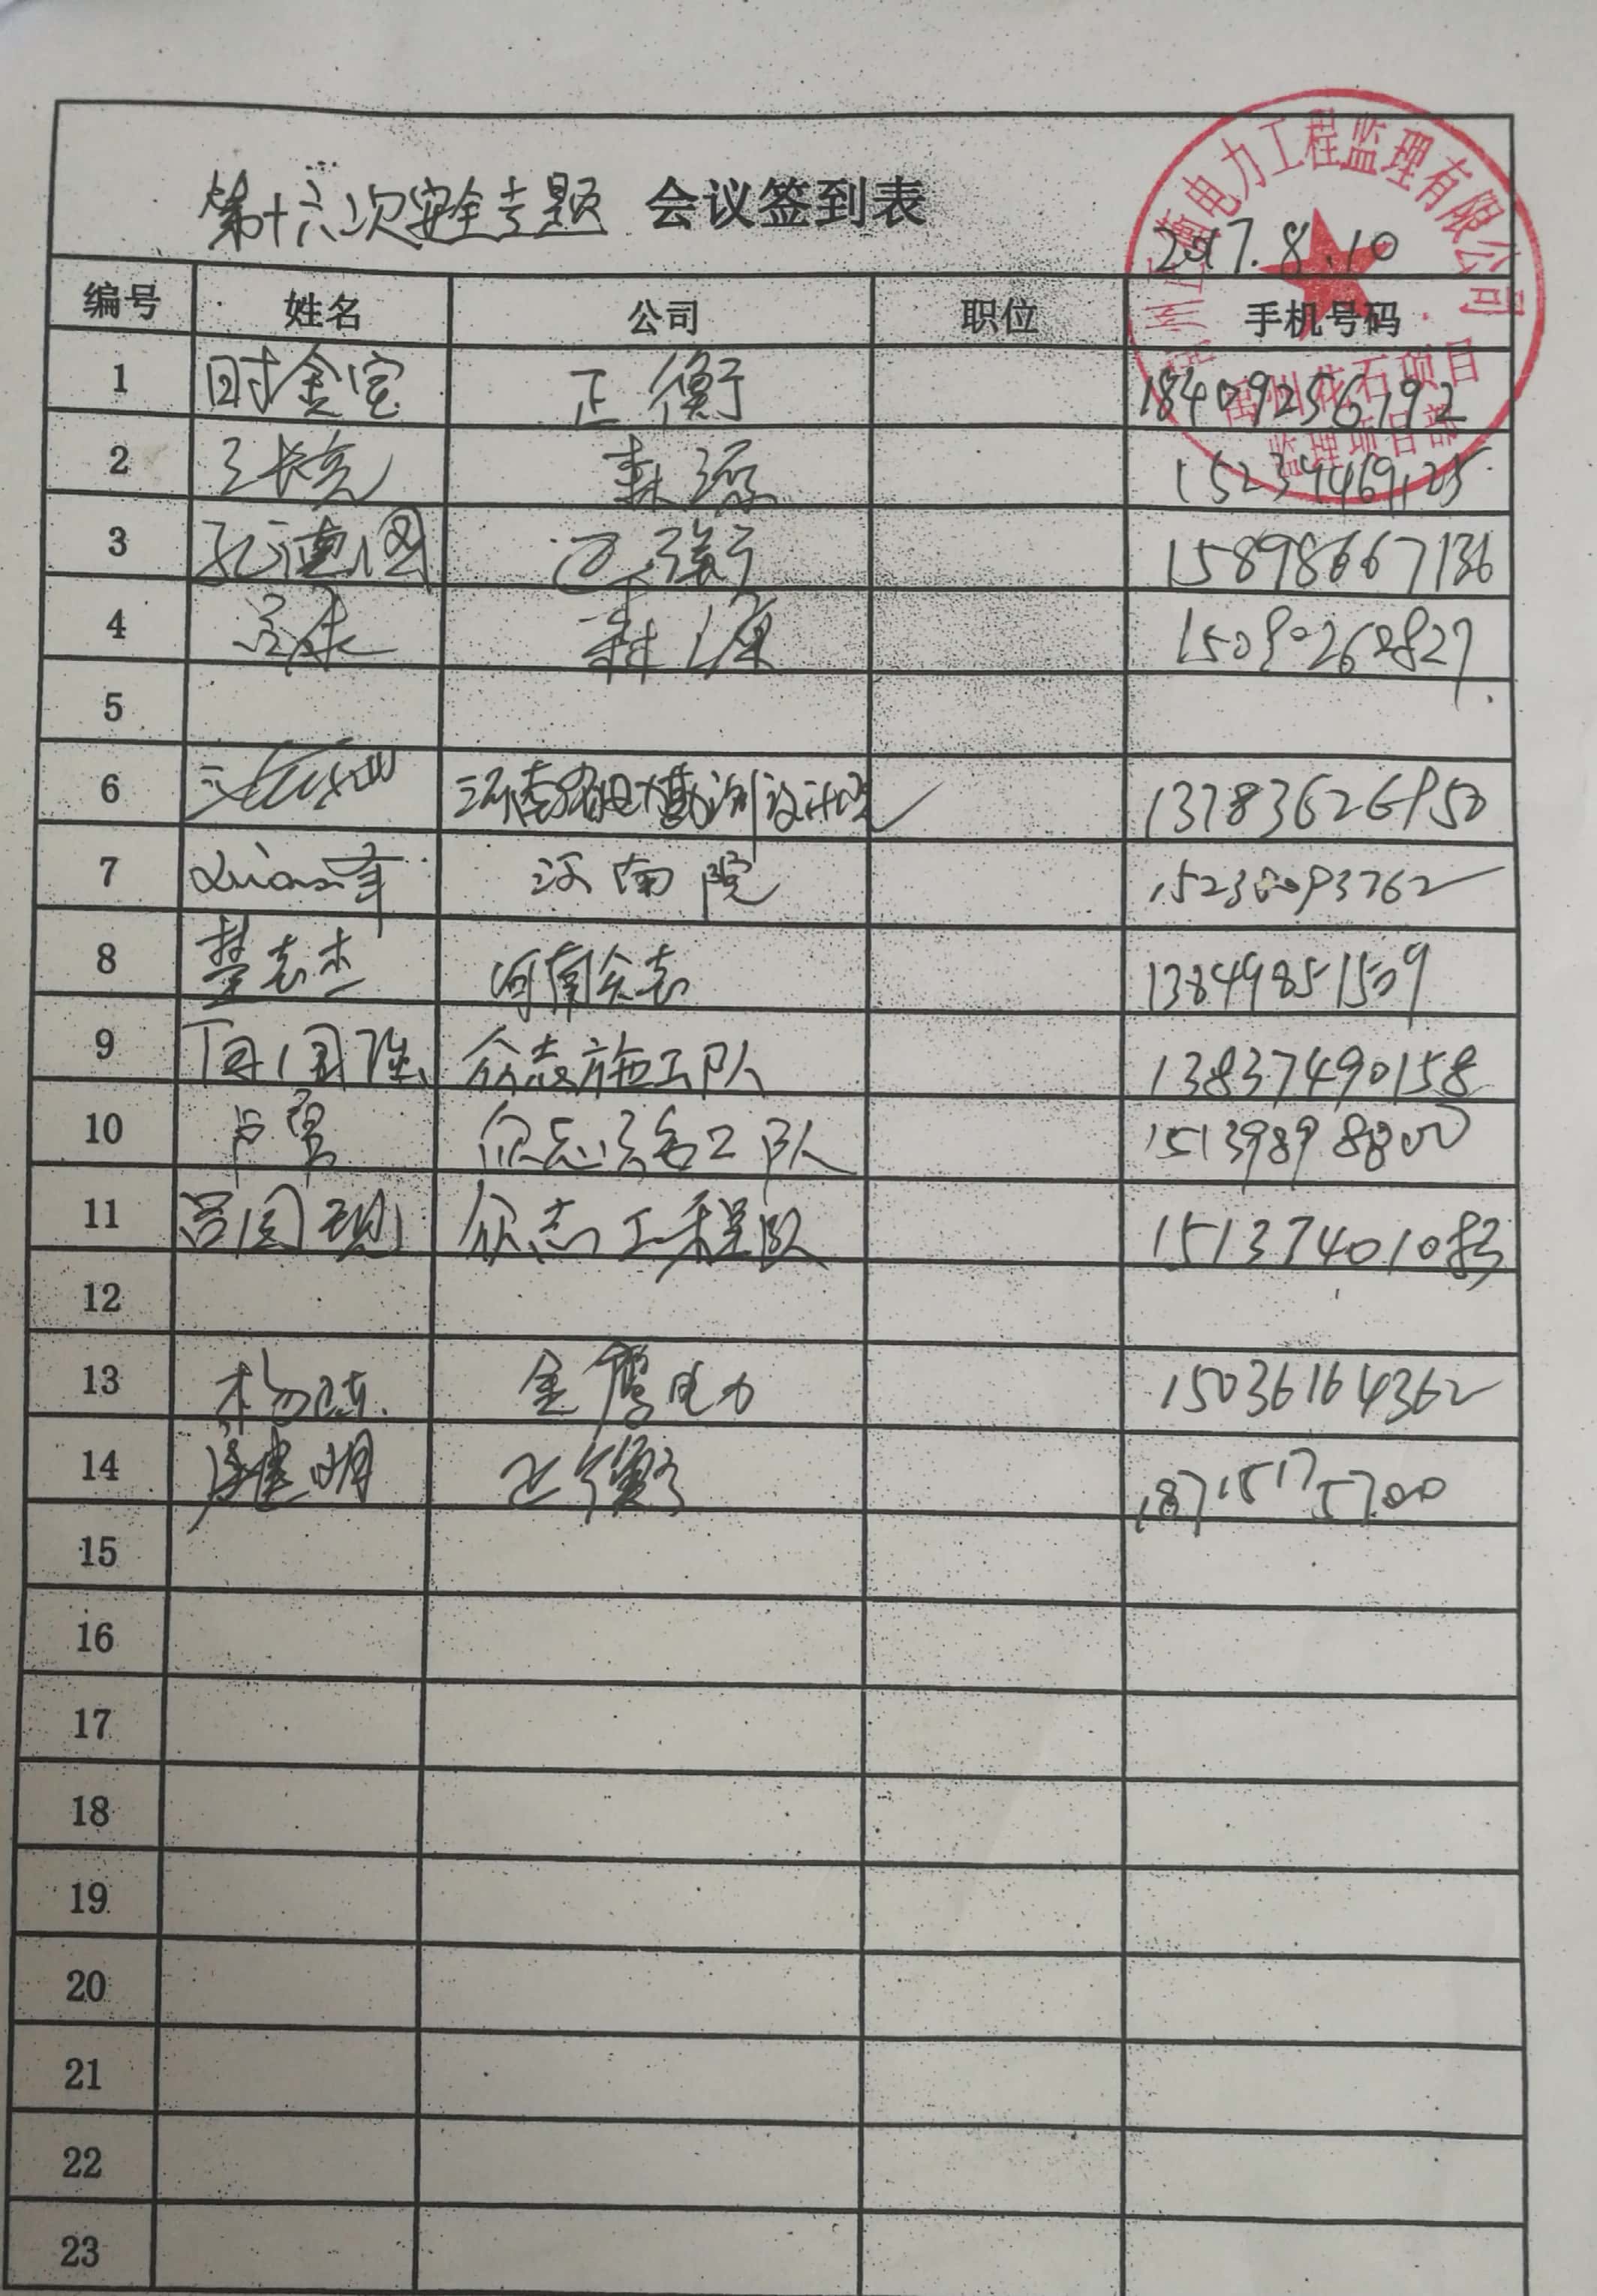 第十六次安全专题 会议签到表
电力工程监理有限公司
2017.8.10
编号 姓名 公司 职位 手机号码
禹州花石项目
监理项目部
1 时金宝 正衡 18409256792
2 王长亮 森源 15239469125
3 孔德图 正衡 15898667136
4 森源 15090262827
5
6 13783626950
7 河南院 15238093762
8 楚志杰 河南众志 13849851509
9 国强 众志施工队 13837490158
10 卢勇 众志施工队 15139898800
11 吕国现 众志工程队 15137401083
12
13 杨 金鹰电力 15036164362
14 建明 正衡 18715175700
15
16
17
18
19
20
21
22
23